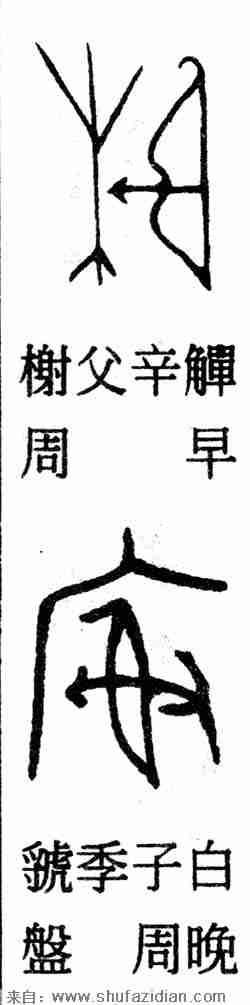 榭父辛觶
周 早
虢季子白
盤 周晚
来自：www.shufazidian.com